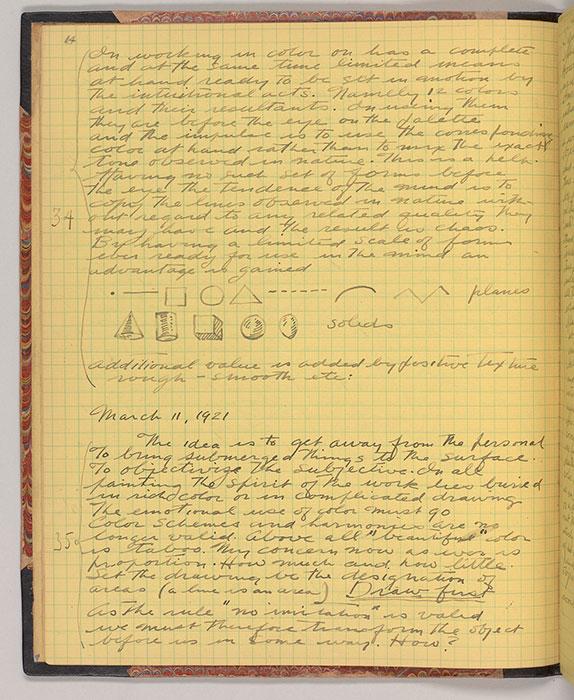 14
In working in color on has a complete
and at the same time limited means
at hand ready to be set in motion by
the intuitional acts. Namely 12 colors
and their resultants. In using them
they are before the eye on the palette
and the impulse is to use the corresponding
color at hand rather than to mix the exact
tone observed in nature. This is a help.
Having no such set of forms before
the eye the tendency of the mind is to
34
copy the lines observed in nature with-
out regard to any related quality they
may have and the result is chaos.
By having a limited scale of forms
ever ready for use in the mind an
advantage is gained
planes
solids
additional value is added by positive texture
rough - smooth etc:
March 11, 1921
The idea is to get away from the personal
To bring submerged things to the surface.
To objectivize the subjective. In all
painting the spirit of the work lies buried
in rich color or in complicated drawing
The emotional use of color must go
Color schemes and harmonies are no
35
longer valid. above all "beautiful" color
is taboo. My concern now as ever is
proportion. How much and how little.
Let the drawing be the designation of
areas (a line is an area) Draw first
As the rule "no imitation" is valid
we must therefore transform the object
before us in some way. How?